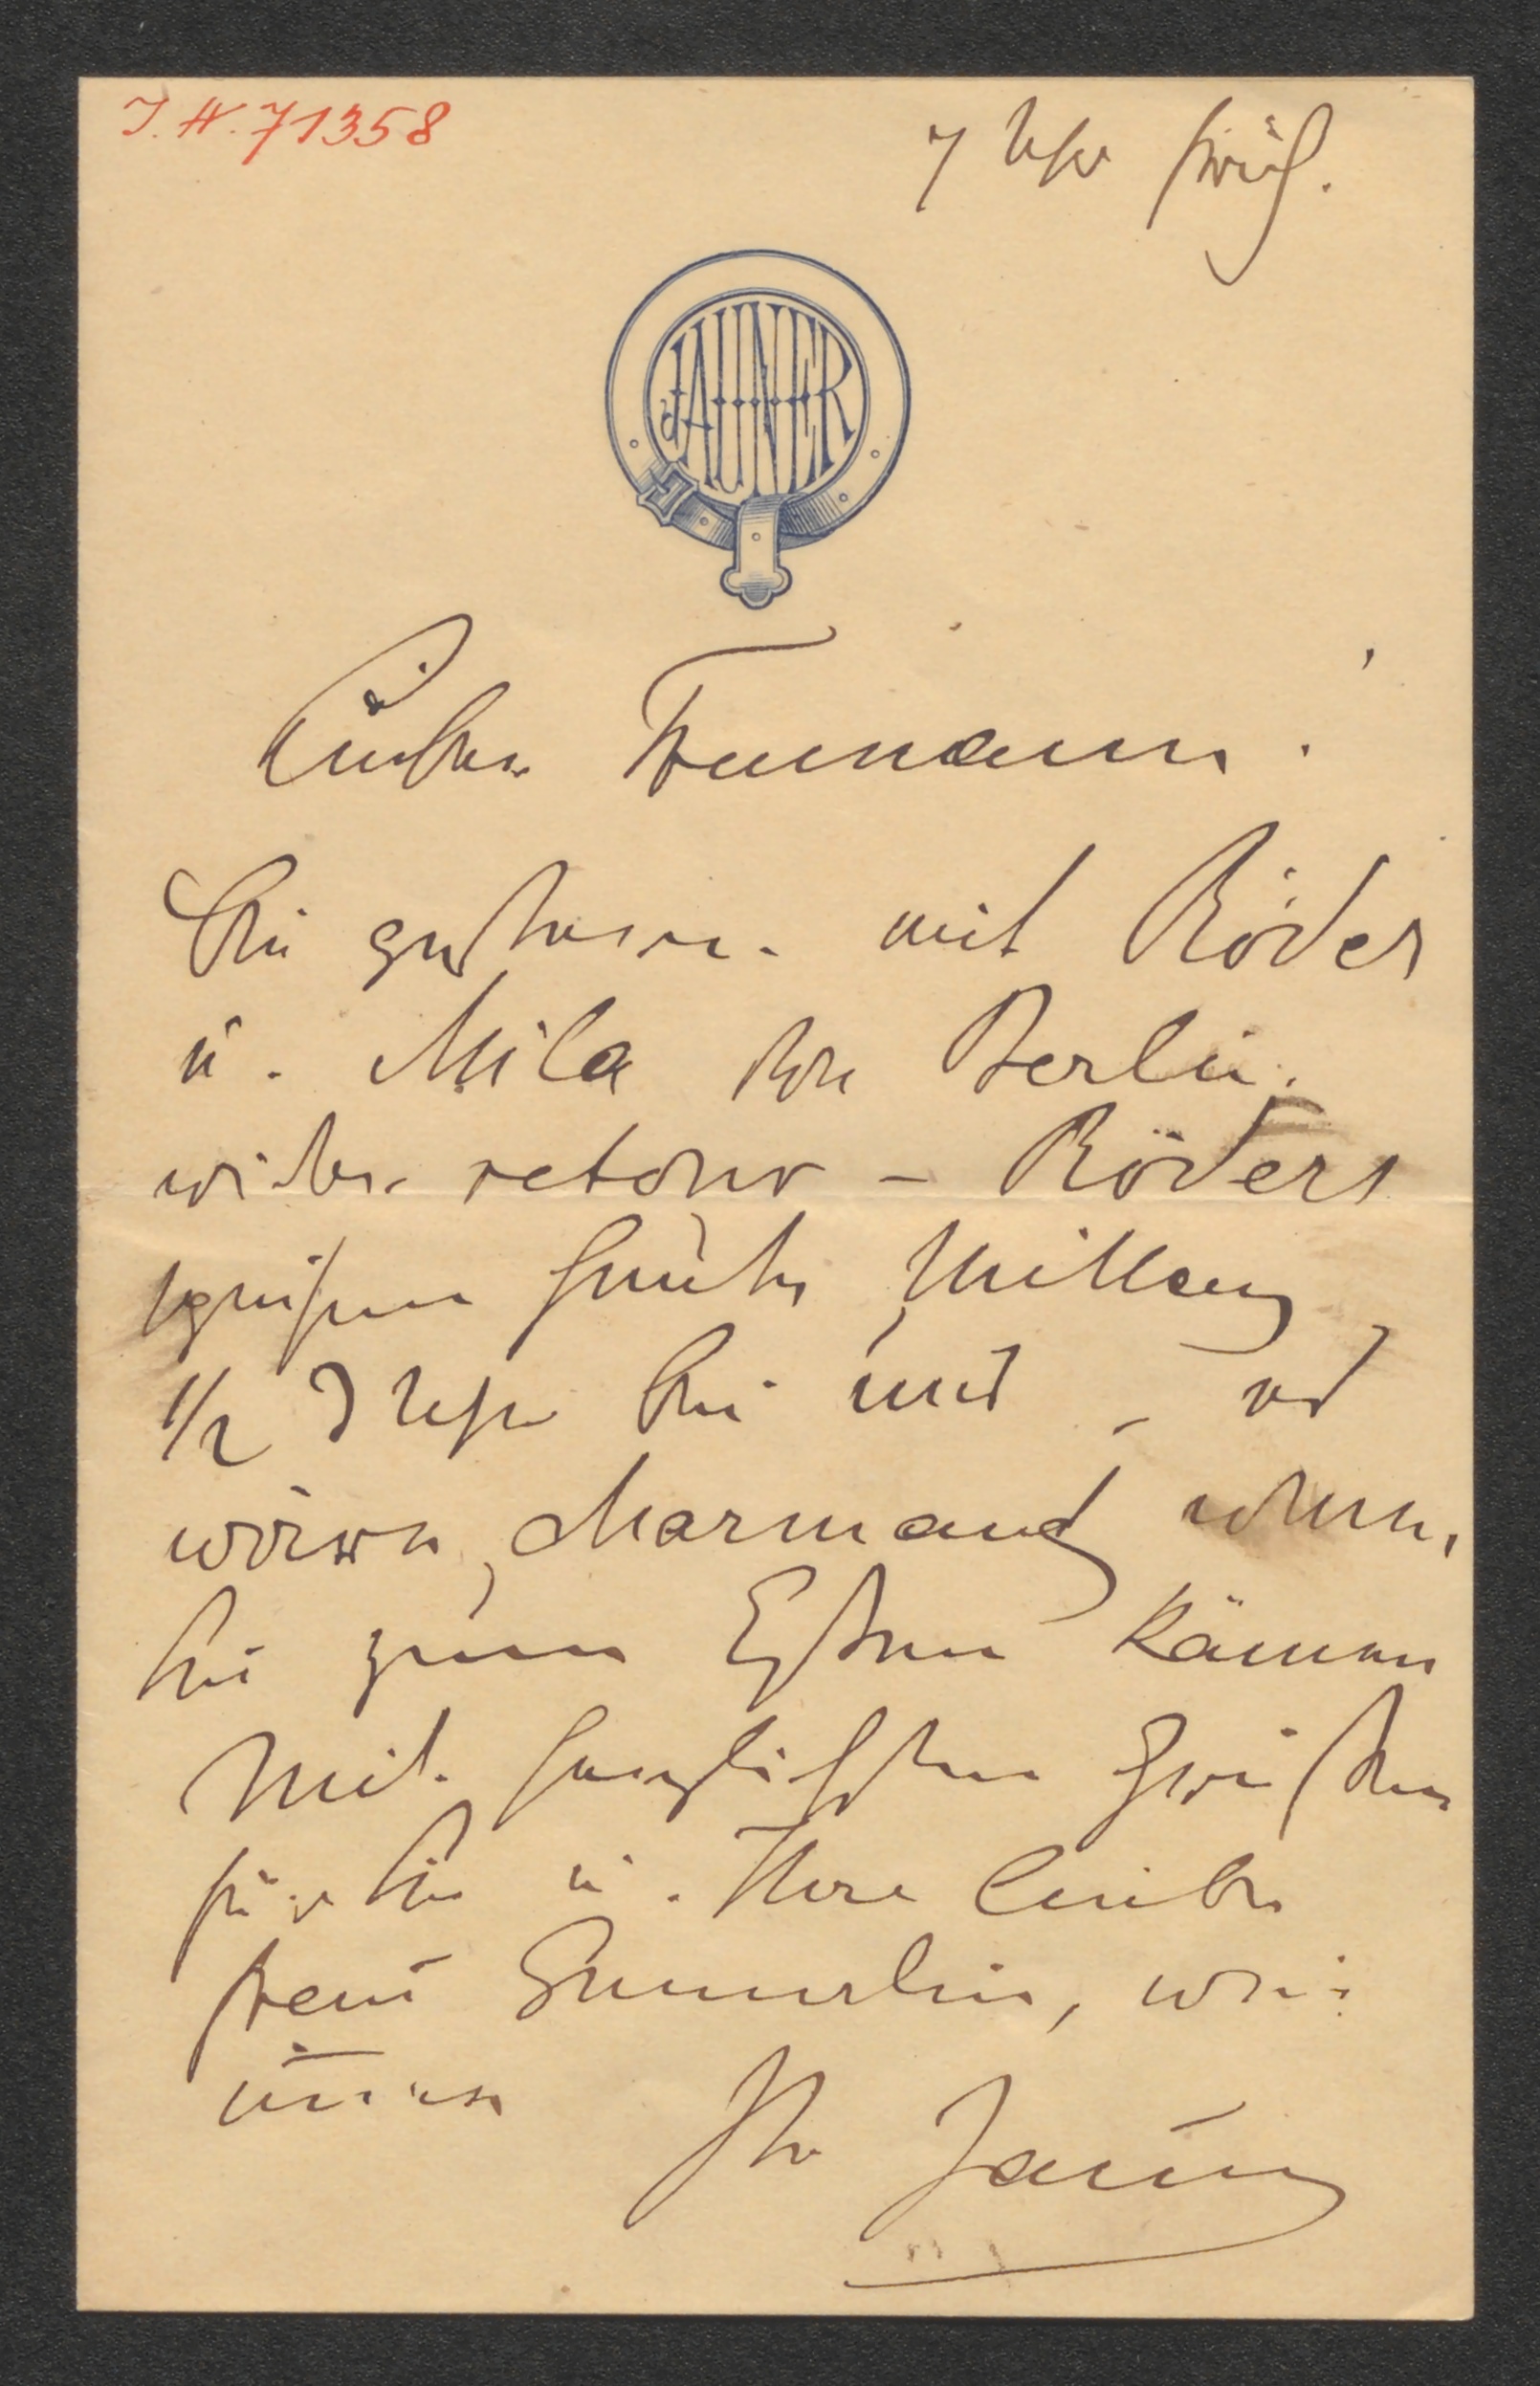 I.N. 71358
7 Uhr früh.
JAUNER
Lieber Freund!
Bin gestern mit Röder
u. Mila von Berlin
wieder retour – Röders
speisen heute Mittag
1/2 3 Uhr bei uns – es
wäre charmant, wenn
Sie zum Essen kämen
Mit herzlichsten Grüßen
für Sie u. Ihre liebe
Frau Gemahlin, wie
immer
Ihr Jauner